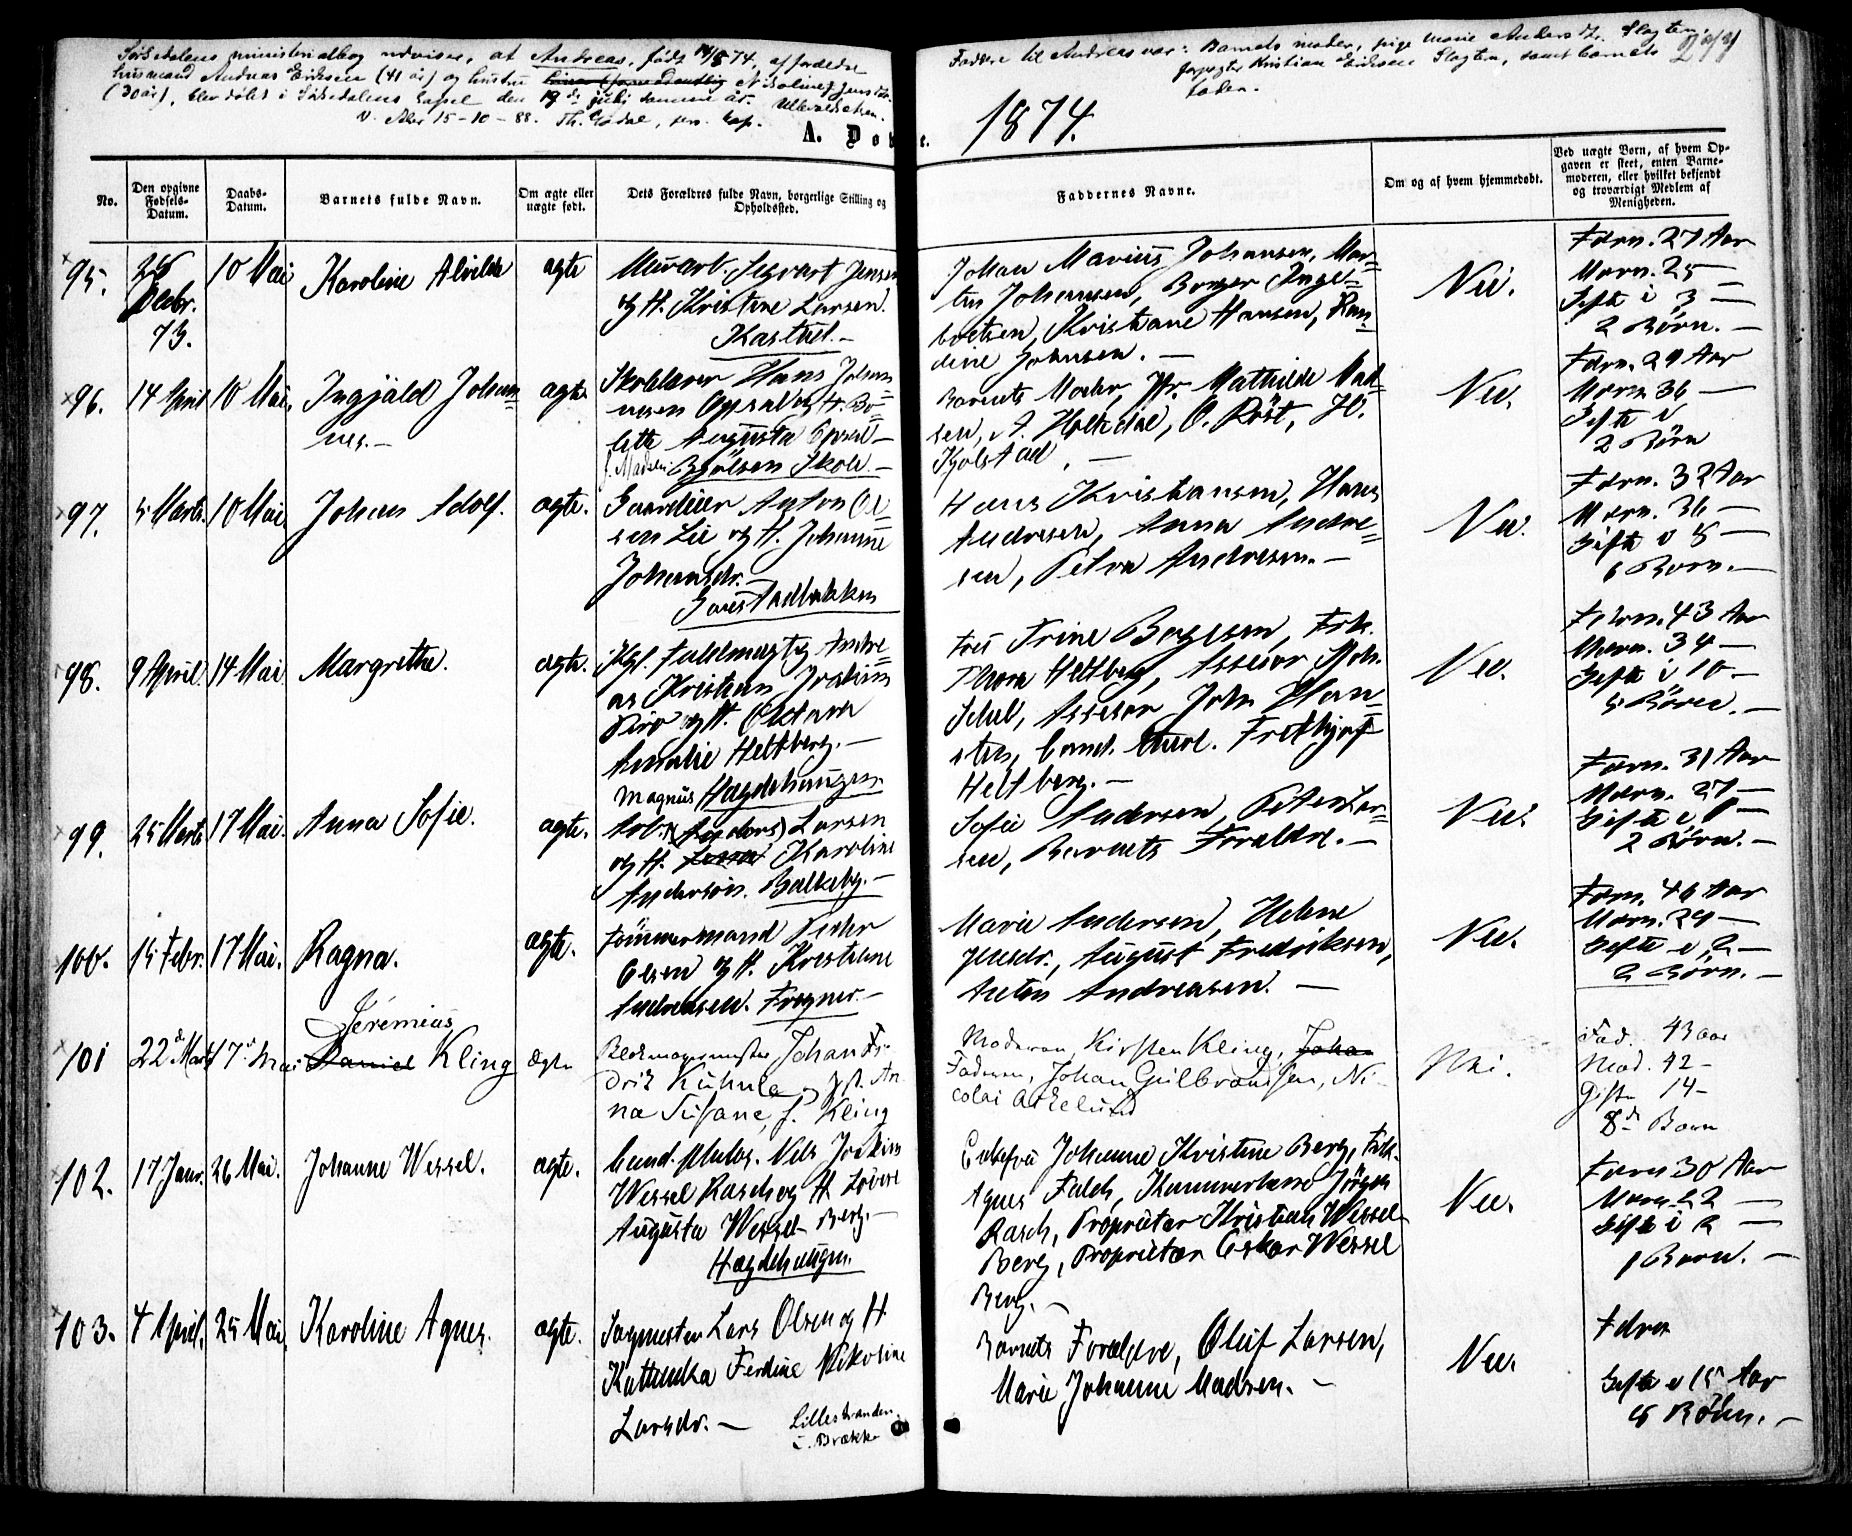 Sørkedalens ministerialbog udviser, at Andreas, født 14/5 74, af forældre
husmand Andreas Eriksen (41 år) og hustru Nikoline Jensdr.
(30 år), blev døbt i Sørkedalens kapel den 19de juli samme år. Ullevoldsetren.
V. Aker 15-10-88. Th. Gødal, pers. kap.
Faddere til Andreas var: Barnets moder, pige Marie Andersdr. Slagtern,
forpagter Kristian Eriksen Slagtern, samt barnets
fader.
1874.
A. Døbte.
No.
Den opgivne Fødsels-Datum.
Daabs-Datum.
Barnets fulde Navn.
Om ægte eller uægte født.
Dets Forældres fulde Navn, borgerlige Stilling og Opholdssted.
Faddernes Navne.
Om og af hvem hjemmedøbt.
Ved uægte Børn, af hvem Opgaven er skeet, enten Barnemoderen, eller hvilket bekjendt og troværdigt Medlem af Menigheden.
95.
Decbr.
73.
10 Mai
Karoline Alvilde
ægte
Murarb. Sigvart Jensen
og H. Kristine Larsen.
Johan Marius Johansen, Mar=
tin Johansen, Borger Inge=
bretsen, Kristiane Hansen, Ran=
dine Johnsen. —
Nei.
Færn. 27 Aar
Mærn. 25 —
Gifte i 3 —
2 Børn. —
96.
14 April
10 Mai.
Ingjald Johan=
nes. —
ægte
Skolelærer Hans Johan=
nesen Opsal og H. Bo=
lette Augusta Opsal —
f. Madsen Bjølsen Skole. —
Barnets Moder, Fr. Mathilde Mad=
sen, A. Holtedal, O. Røst, H.
Kjolstad. —
Nei.
Færn. 29 Aar
Mærn 36 —
Gifte i
2 Børn
97.
5 Marts.
10 Mai.
Johan Adolf.
ægte.
Gaardeier Anton Ol=
sen Lie og H. Johanne
Johansdr. —
Hans Kristiansen, Hans
Andresen, Anna Andre=
sen, Petra Andresen. —
Nei.
Færn. 32 Aar
Mærn. 36 —
Gifte i 8 —
6 Børn. —
98.
9 April.
14 Mai
Margrethe.
ægte.
Kgl. Fuldmægtig Andre=
as Kristian Joakim
Piro og H. Oktava
Amalie Heltberg. —
Hægdehaugen
Frøi Trine Borgesen, Frk.
Thora Heltberg, Assessor Joh.
Scheel, Assessor John Han=
sten, Cand. theol. Frethjof
Heltberg. —
Nei.
Færn. 43 Aar
Mærn. 34 —
Gifte i 10 —
5 Børn. —
99.
25 Marts
17 Mai.
Anna Sofie.
ægte.
Magnus
Arb. Larsen
og H. Karoline
Anderson. Balkeby. —
Sofie Andersen, Peter Lar=
sen, Barnets Forældre. —
Nei.
Færn. 31 Aar
Mærn. 27 —
2 Børn. —
100.
15 Febr.
17 Mai.
Ragna.
ægte.
Tømmermand Peder
Olsen og H. Kristiane
Andreasen. Frogner. —
Marie Andersen, Helene
Jensdr., August Fredriksen,
Anton Andreasen. —
Nei.
Færn. 46 Aar
Mærn. 29 —
Gifte i 2 —
2 Børn. —
101
22de Marts
17de Mai
Jeremias
Daniel Kling
Ægte
Blikmagermester Johan Fr=
drik Kühnle og H. An
na Susane, f. Kling
Moderen, Kirsten Kling, Johan
Faderen, Johan Gulbrandsen, Ni=
colai Askelund
Nei.
Fad. 43 aar
Mod. 42 —
Gifte 14 —
8de Barn
102.
17 Janr.
26 Mai.
Johanne Wessel.
ægte.
Cand. philos. Nils Joakim
Wessel Rasch og H. Lovise
Augusta Wessel Berg. —
Hægdehaugen.
Enkefru Johanne Kristine Berg, Frk.
Agnes Falch, Kammerherre Jørgen
Rasch, Proprietær Kristian Wessel
Berg, Proprietær Oskar Wessel
Berg. —
Nei.
Færn 30 Aar
Mærn 22 —
Gifte i 2 —
1 Barn. —
103.
4 April.
25 Mai.
Karoline Agnes.
ægte.
Sagmester Lars Olsen og H.
Kathinka Ferdine Nikoline
Larsdr. — Lillestranden
i. Brække
Barnets Forældre, Oluf Larsen,
Marie Johanne Madsen. —
Nei.
Færn
Gifte i 15 Aar
8 Børn. —